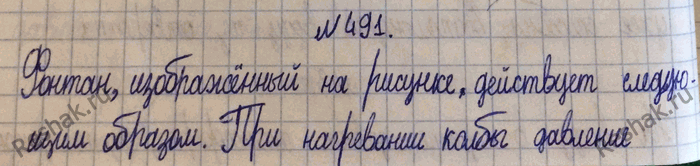 №491.
Фонтан, изображённый на рисунке, действует следую-
щим образом. При нагревании колбы давление